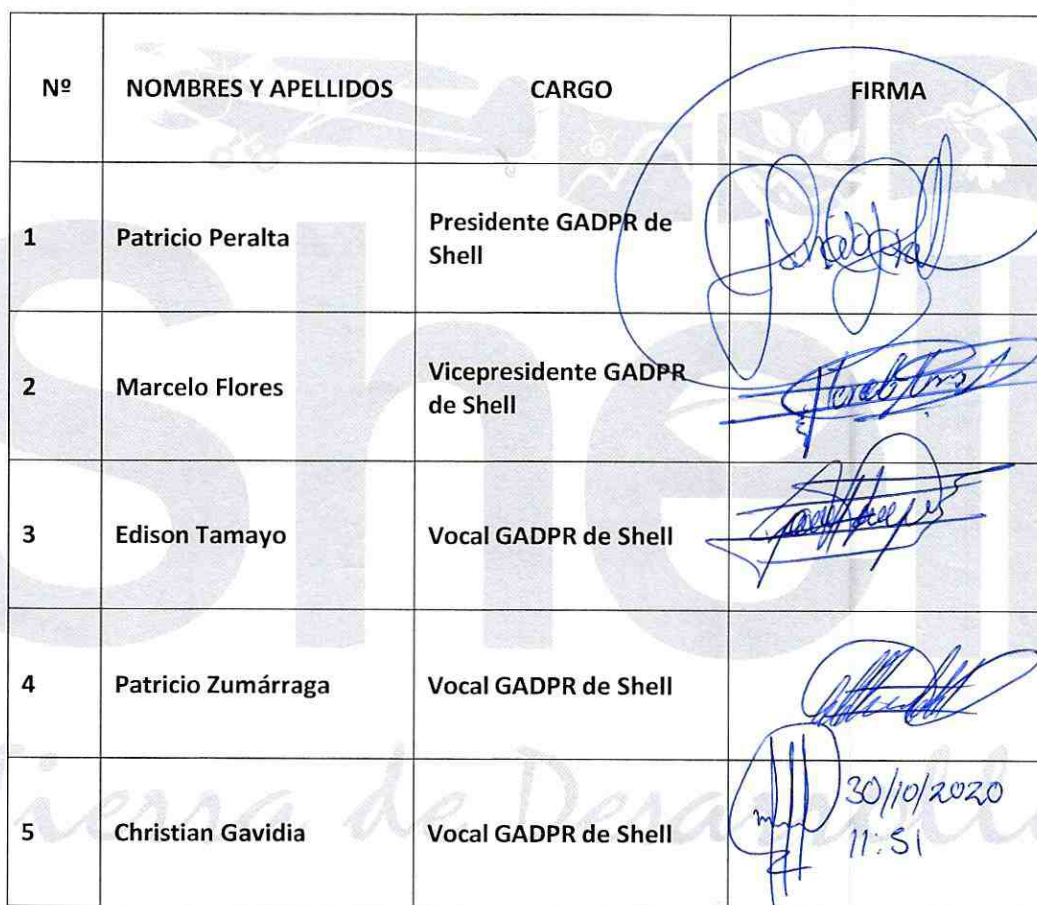 Nº NOMBRES Y APELLIDOS CARGO FIRMA
1 Patricio Peralta Presidente GADPR de
Shell
2 Marcelo Flores Vicepresidente GADPR
de Shell
3 Edison Tamayo Vocal GADPR de Shell
4 Patricio Zumárraga Vocal GADPR de Shell
5 Christian Gavidia Vocal GADPR de Shell
30/10/2020
11:51
Shell
Tierra de Desarrollo